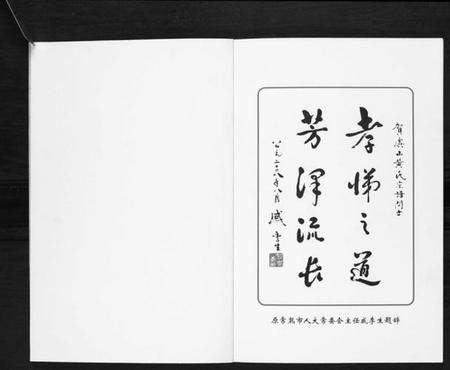 贺虞山黄氏宗谱问世
孝悌之道
芳泽流长
公元二〇一八年八月 戚李生
原常熟市人大常委会主任戚李生题辞